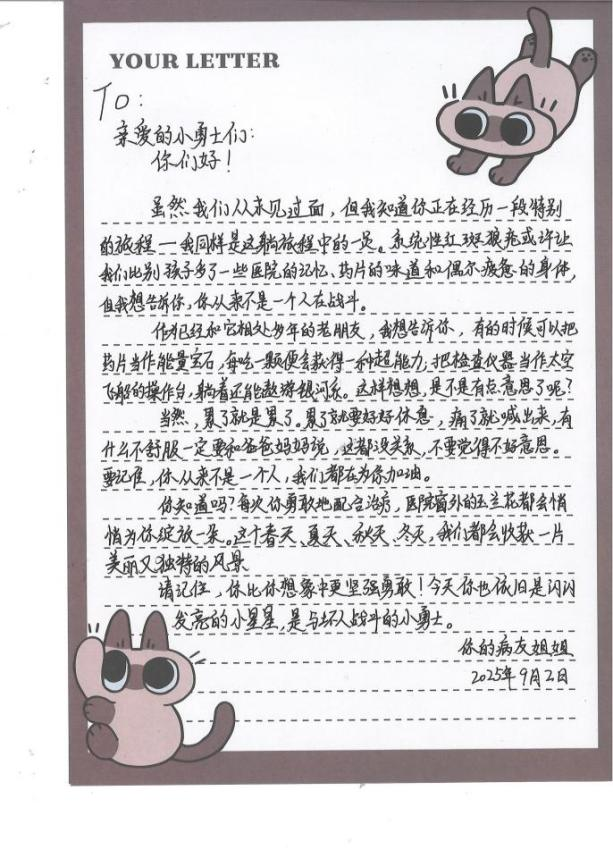 YOUR LETTER
To:
亲爱的小勇士们:
你们好!
虽然我们从未见过面，但我知道你正在经历一段特别
的旅程—我同样是这趟旅程中的一员。系统性红斑狼疮或许让
我们比别孩子多了一些医院的记忆、药片的味道和偶尔疲惫的身体，
但我想告诉你，你从来不是一个人在战斗。
作为已经和它相处多年的老朋友，我想告诉你，有的时候可以把
药片当作能量宝石，每吃一颗便会获得一种超能力；把检查仪器当作太空
飞船的操作台，躺着还能遨游银河系。这样想想，是不是有点意思了呢?
当然，累了就是累了。累了就要好好休息，痛了就喊出来，有
什么不舒服一定要和爸爸妈妈说，这都没关系，不要觉得不好意思。
要记住，你从来不是一个人，我们都在为你加油。
你知道吗?每次你勇敢地配合治疗，医院窗外的玉兰花都会悄
悄为你绽放一朵。这个春天、夏天、秋天、冬天，我们都会收获一片
美丽又独特的风景
请记住，你比你想象中更坚强勇敢!今天你也依旧是闪闪
发亮的小星星，是与坏人战斗的小勇士。
你的病友姐姐
2025年9月2日